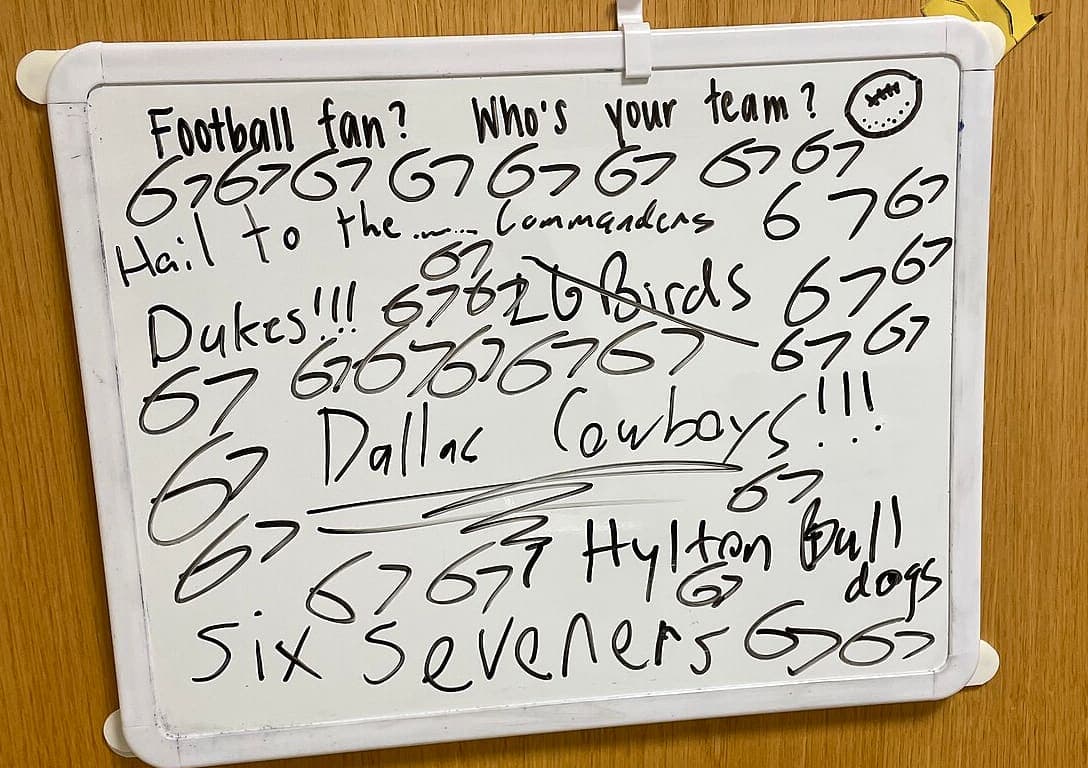 Football fan? Who's your team?
67 67 67 67 67 67 67 67
Hail to the ...... Commanders 67 67
67
Dukes!!! 67 67 Birds 67 67
67 67 67 67 67 67 67
67
Dallas Cowboys!!!
67 67
67 Hylton Bull
dogs
67 67 67
Six Seveners 67 67